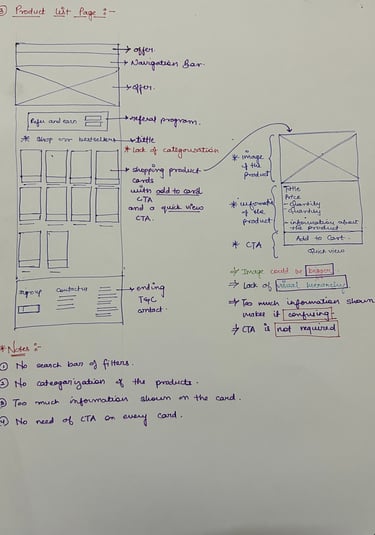 ③ Product List Page :-
→ offer.
→ Navigation Bar.
→ offer.
Refer and earn
→ referal program.
* Shop our bestsellers → title
* Lack of categorisation
→ shopping product
cards
with add to card
CTA
and a quick view
CTA.
Contact us
→ ending
T&C
contact.
* image
of the
product
Title
Price
- Quantity
- Quantity
- information about
the product
* informati
of the
product
* CTA
Add to Cart
Quick view
→ Image could be bigger.
→ Lack of visual hierarchy
→ Too much information shown
makes it confusing.
→ CTA is not required
* Notes :-
① No search bar of filters.
② No categorization of the products.
③ Too much information shown on the card.
④ No need of CTA on every card.